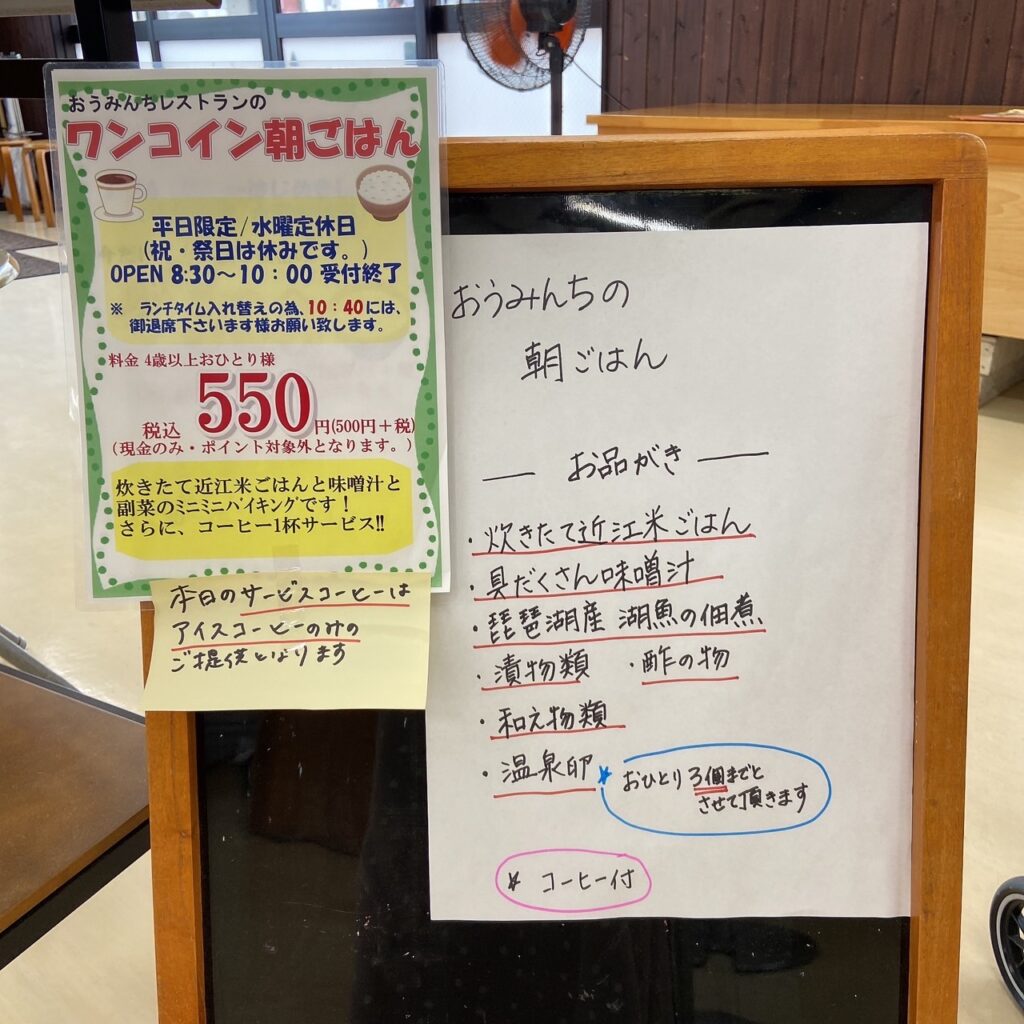 おうみんちレストランの
ワンコイン朝ごはん
平日限定/水曜定休日
(祝・祭日は休みです。)
OPEN 8:30～10：00 受付終了
※ ランチタイム入れ替えの為、10：40には、
御退席下さいます様お願い致します。
料金 4歳以上おひとり様
税込 550円(500円＋税)
(現金のみ・ポイント対象外となります。)
炊きたて近江米ごはんと味噌汁と
副菜のﾐﾆﾐﾆﾊﾞｲｷﾝｸﾞです！
さらに、コーヒー1杯サービス!!
本日のサービスコーヒーは
アイスコーヒーのみの
ご提供となります
おうみんちの
朝ごはん
― お品がき ―
・炊きたて近江米ごはん
・具だくさん味噌汁
・琵琶湖産 湖魚の佃煮
・漬物類 ・酢の物
・和え物類
・温泉卵
★おひとり3個までと
させて頂きます
★ コーヒー付